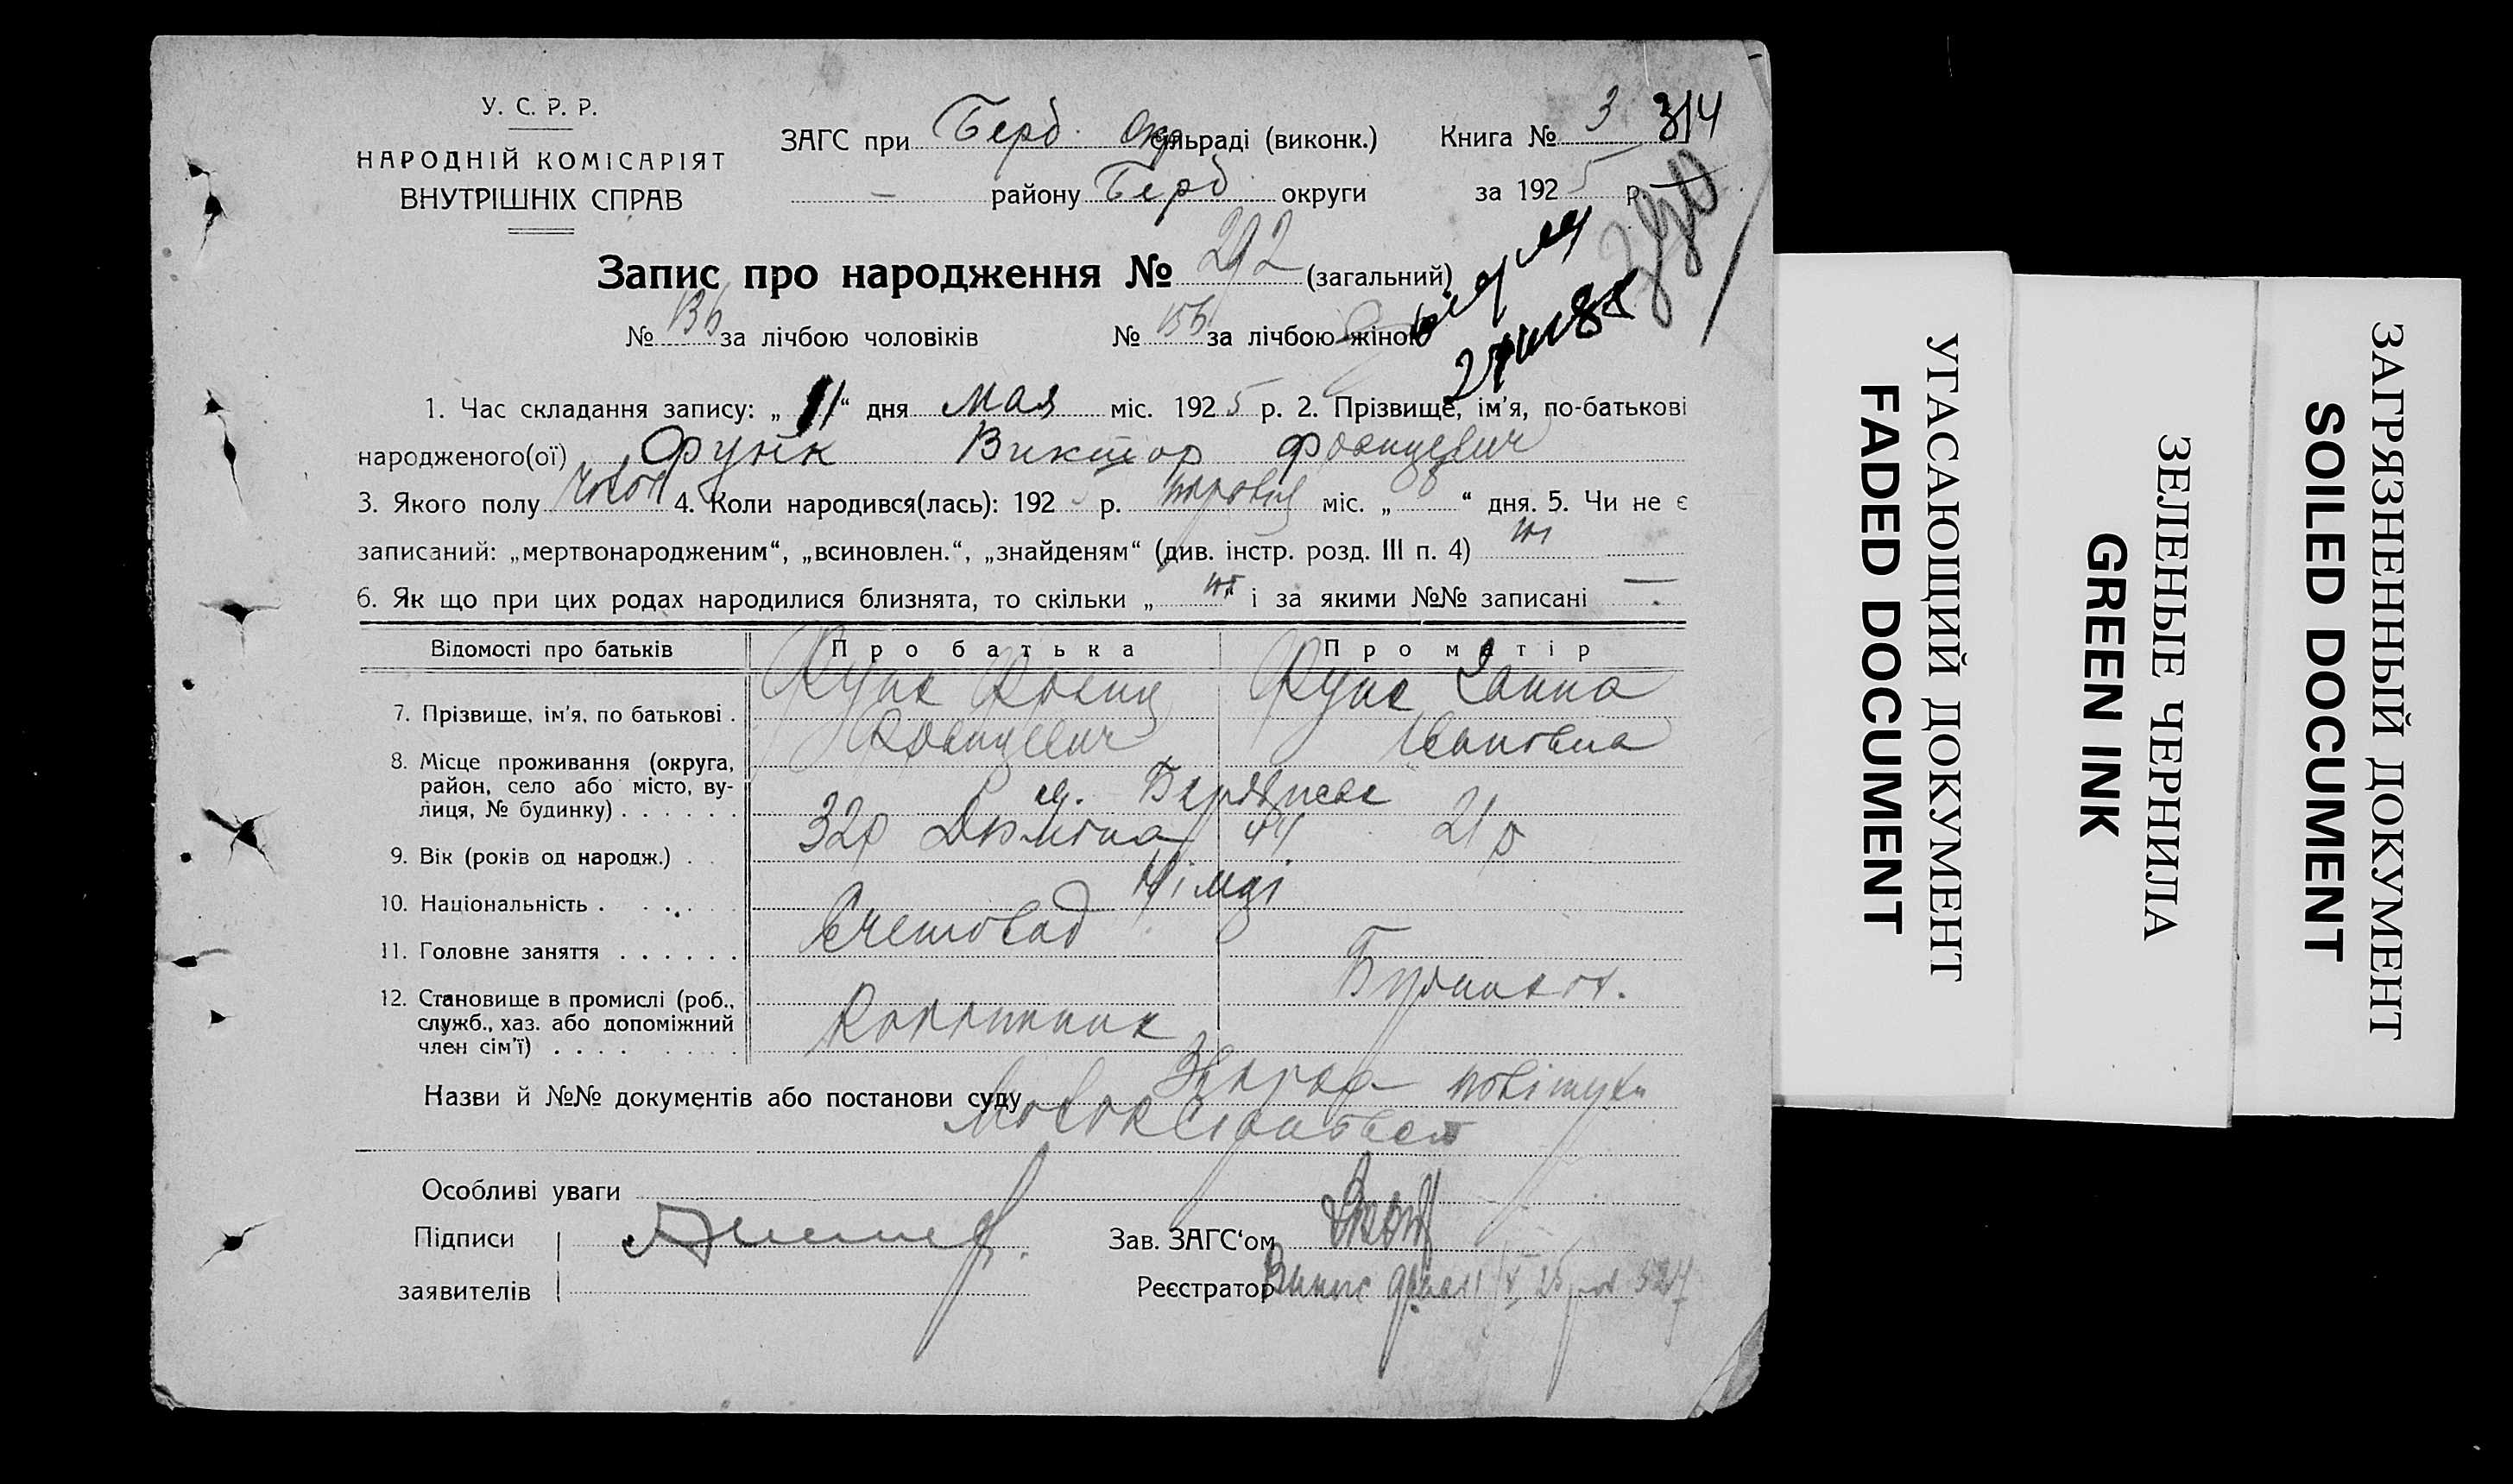 У. С. Р. Р.
НАРОДНІЙ КОМІСАРІЯТ
ВНУТРІШНІХ СПРАВ
ЗАГС при Берд. Окр сільраді (виконк.) Книга № 3 314
— району Берд. округи за 1925 р.
330
Запис про народження № 292 (загальний)
№ 136 за лічбою чоловіків № 156 за лічбою жінок
1. Час складання запису: „11“ дня мая міс. 1925 р. 2. Прізвище, ім'я, по-батькові
народженого(ої) Функ Виктор Францевич
3. Якого полу чолов 4. Коли народився(лась): 192 р. міс. „8“ дня. 5. Чи не є
записаний: „мертвонародженим“, „всиновлен.“, „знайденям“ (див. інстр. розд. III п. 4) ні
6. Як що при цих родах народилися близнята, то скільки „ні“ і за якими №№ записані —
Відомості про батьків Про батька Про матір
7. Прізвище, ім'я, по батькові . Функ Франц Францевич Функ Ганна Івановна
8. Місце проживання (округа,
район, село або місто, ву-
лиця, № будинку) . . . . . . м. Бердянськ
9. Вік (років од народж.) . . 32р 44 21 р
10. Національність . . . . Німці
11. Головне заняття . . . . . . Счетовод
12. Становище в промислі (роб.,
служб., хаз. або допоміжний
член сім'ї) . . . .
Назви й №№ документів або постанови суду повітухи
Особливі уваги
Підписи
заявителів
Зав. ЗАГС'ом
Реєстратор
УГАСАЮЩИЙ ДОКУМЕНТ
FADED DOCUMENT
ЗЕЛЕНЫЕ ЧЕРНИЛА
GREEN INK
ЗАГРЯЗНЕННЫЙ ДОКУМЕНТ
SOILED DOCUMENT